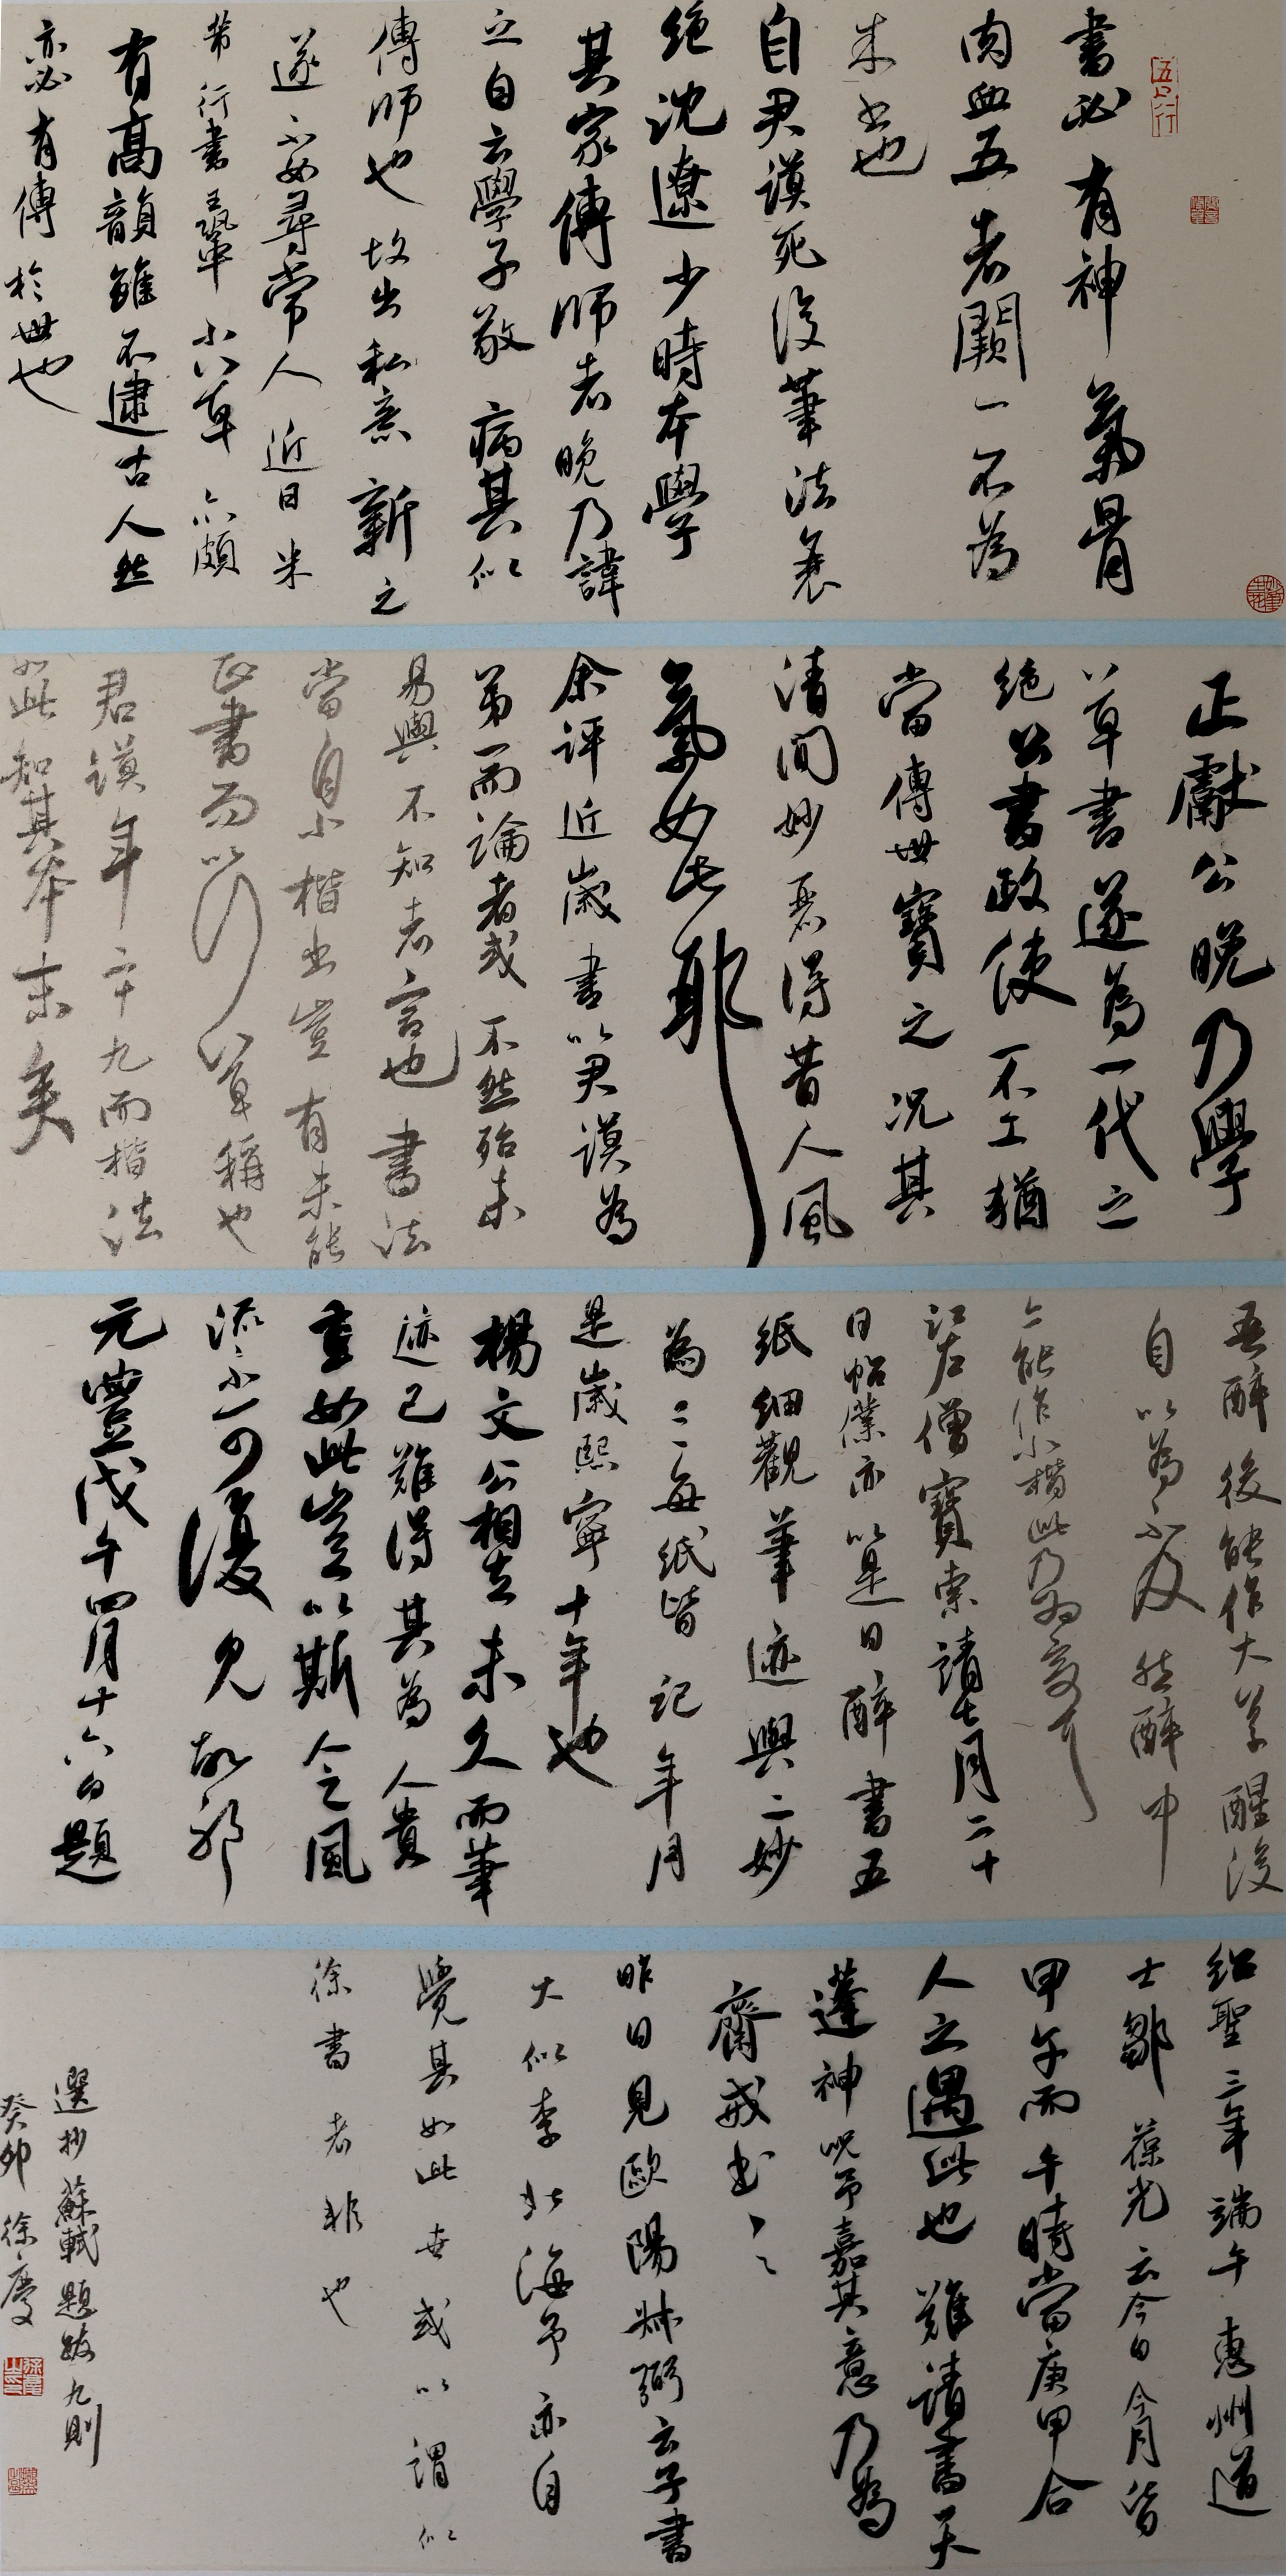 書必有神氣骨
肉血五者闕一不為
成書也
自君謨死後筆法衰
絕沈遼少時本學
其家傳師者晚乃諱
之自云學子敬病其似
傳師也故出私意新之
遂不如尋常人近日米
芾行書王鞏小草亦頗
有高韻雖不逮古人然
亦必有傳於世也
正獻公晚乃學
草書遂為一代之
絕公書政使不工猶
當傳世寶之況其
清閒妙麗得昔人風
氣如此耶
余評近歲書以君謨為
第一而論者或不然殆未
易與不知者言也書法
當自小楷出豈有未能
正書而以行草稱也
君謨年二十九而楷法
如此知其本末矣
吾醉後能作大草醒後
自以為不及然醉中
亦能作小楷此乃為奇耳
江左僧寶索靖七月二十
日帖僕亦以是日醉書五
紙細觀筆迹與二妙
為三每紙皆記年月
是歲熙寧十年也
楊文公相去未久而筆
迹已難得其為人貴
重如此豈以斯人之風
流不可復見故耶
元豐戊午四月十六日題
紹聖三年端午惠州道
士鄒葆光云今日今月皆
甲午而午時當庚甲合
人之遇此也難請書天
蓬神咒予嘉其意乃為
齋戒書之
昨日見歐陽叔弼云子書
大似李北海予亦自
覺其如此世或以謂似
徐書者非也
選抄蘇軾題跋九則
癸卯徐慶